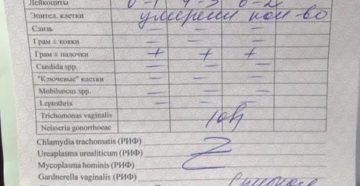 Лейкоциты 0-1 4-5 0-2
Эпител. клетки умерен кол-во
Слизь – – –
Грам ± кокки – – –
Грам ± палочки + + +
Candida spp. – – –
"Ключевые" клетки – – –
Mobiluncus spp. – – –
Leptothrix – – –
Trichomonas vaginalis
Neisseria gonorrhoeae
Chlamydia trachomatis (РИФ)
Ureaplasma urealiticum (РИФ)
Mycoplasma hominis (РИФ)
Gardnerella vaginalis (РИФ)